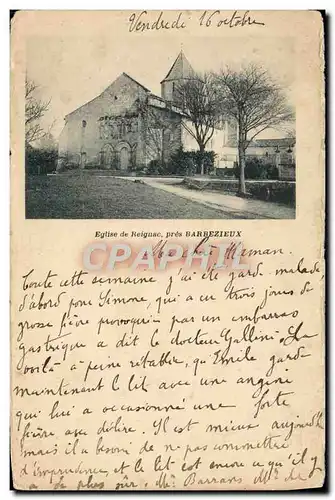 Vendredi 16 octobre
Eglise de Reignac, près BARBEZIEUX
CPARAMA
Ma chère Maman.
Toute cette semaine j'ai été garde malade
d'abord pour Simone, qui a eu trois jours de
grosse fièvre provoquée par un embarras
gastrique a dit le docteur Gallini. La
voilà à peine rétablie, qu'Emile garde
maintenant le lit avec une angine
qui lui a occasionné une forte
fièvre avec délire. Il est mieux aujourd'h
mais il a besoin de ne pas commettre
d'imprudence, et le lit est encore ce qu'il y
a de plus sûr. Mr Barrans Mr de